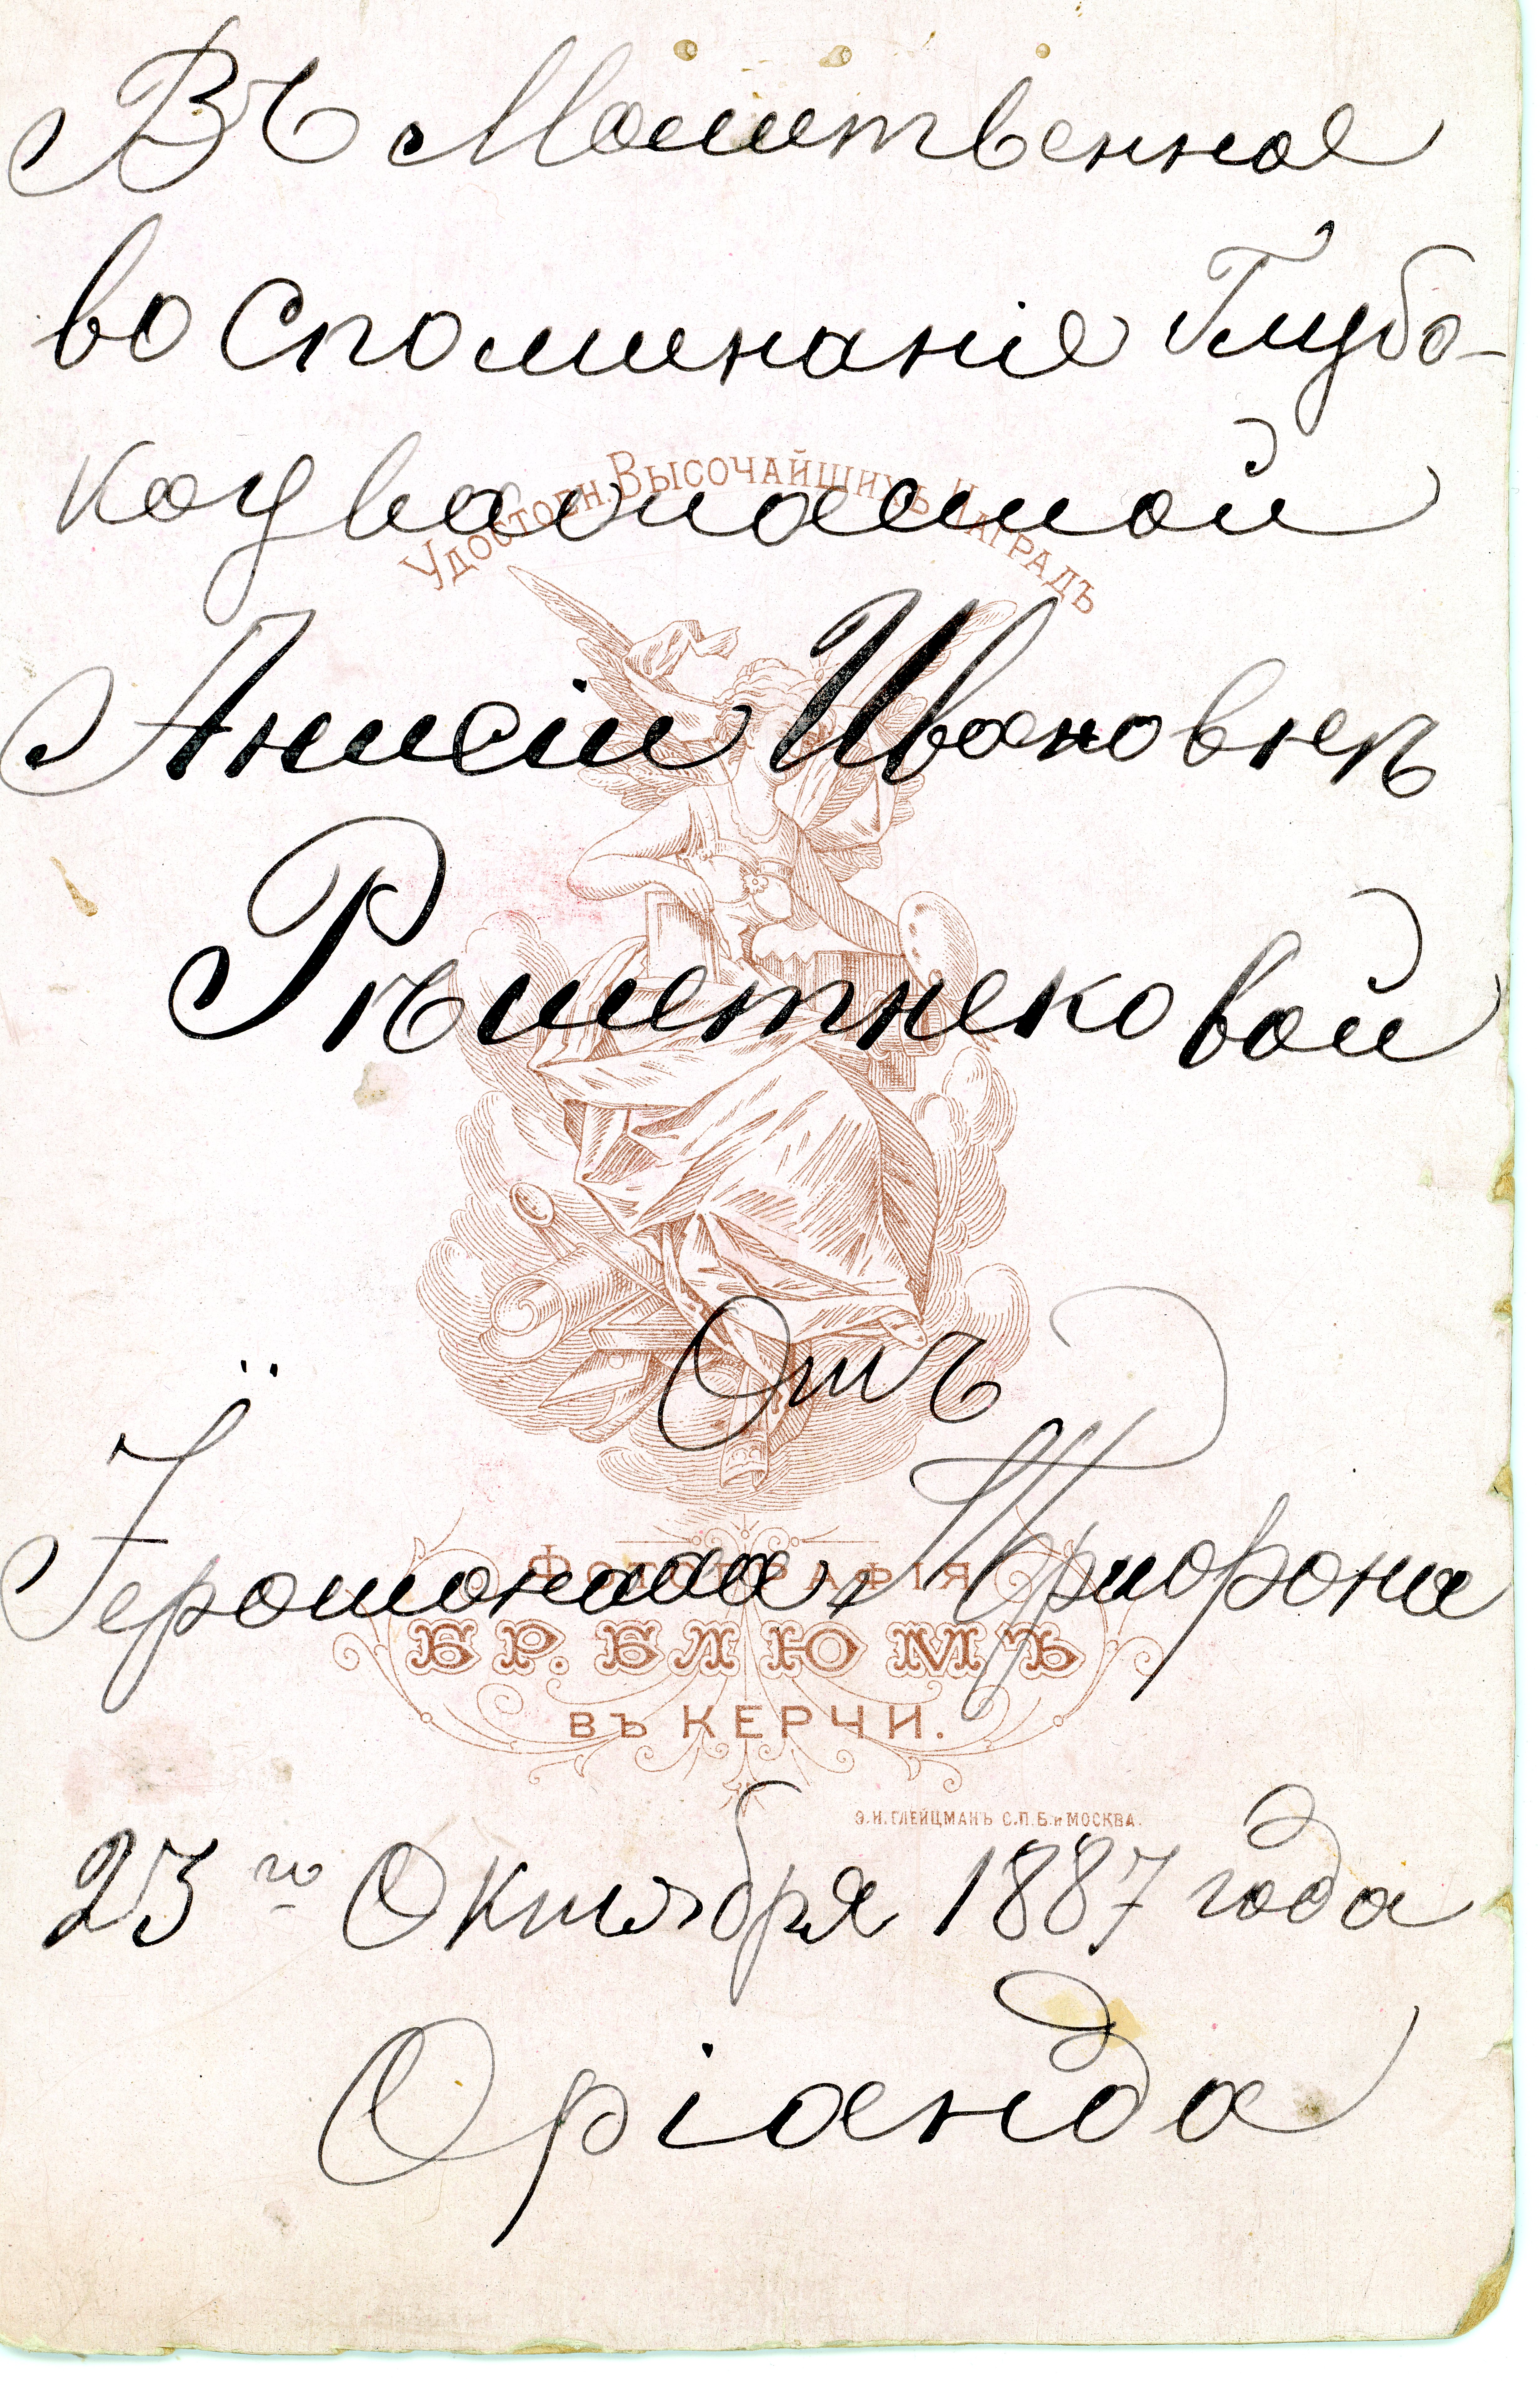 Въ Молитвенное
воспоминаніе Глубо-
коуважаемой
Анисіи Ивановнѣ
Рѣшетнековой
Удостоен. Высочайшихъ Наградъ
Отъ
Іеромонаха Трифона
Фотографія
БР. БЛЮМЪ
ВЪ КЕРЧИ.
Э.И.ГЛЕЙЦМАНЪ С.П.Б. и МОСКВА.
23го Октября 1887 года
Оріанда